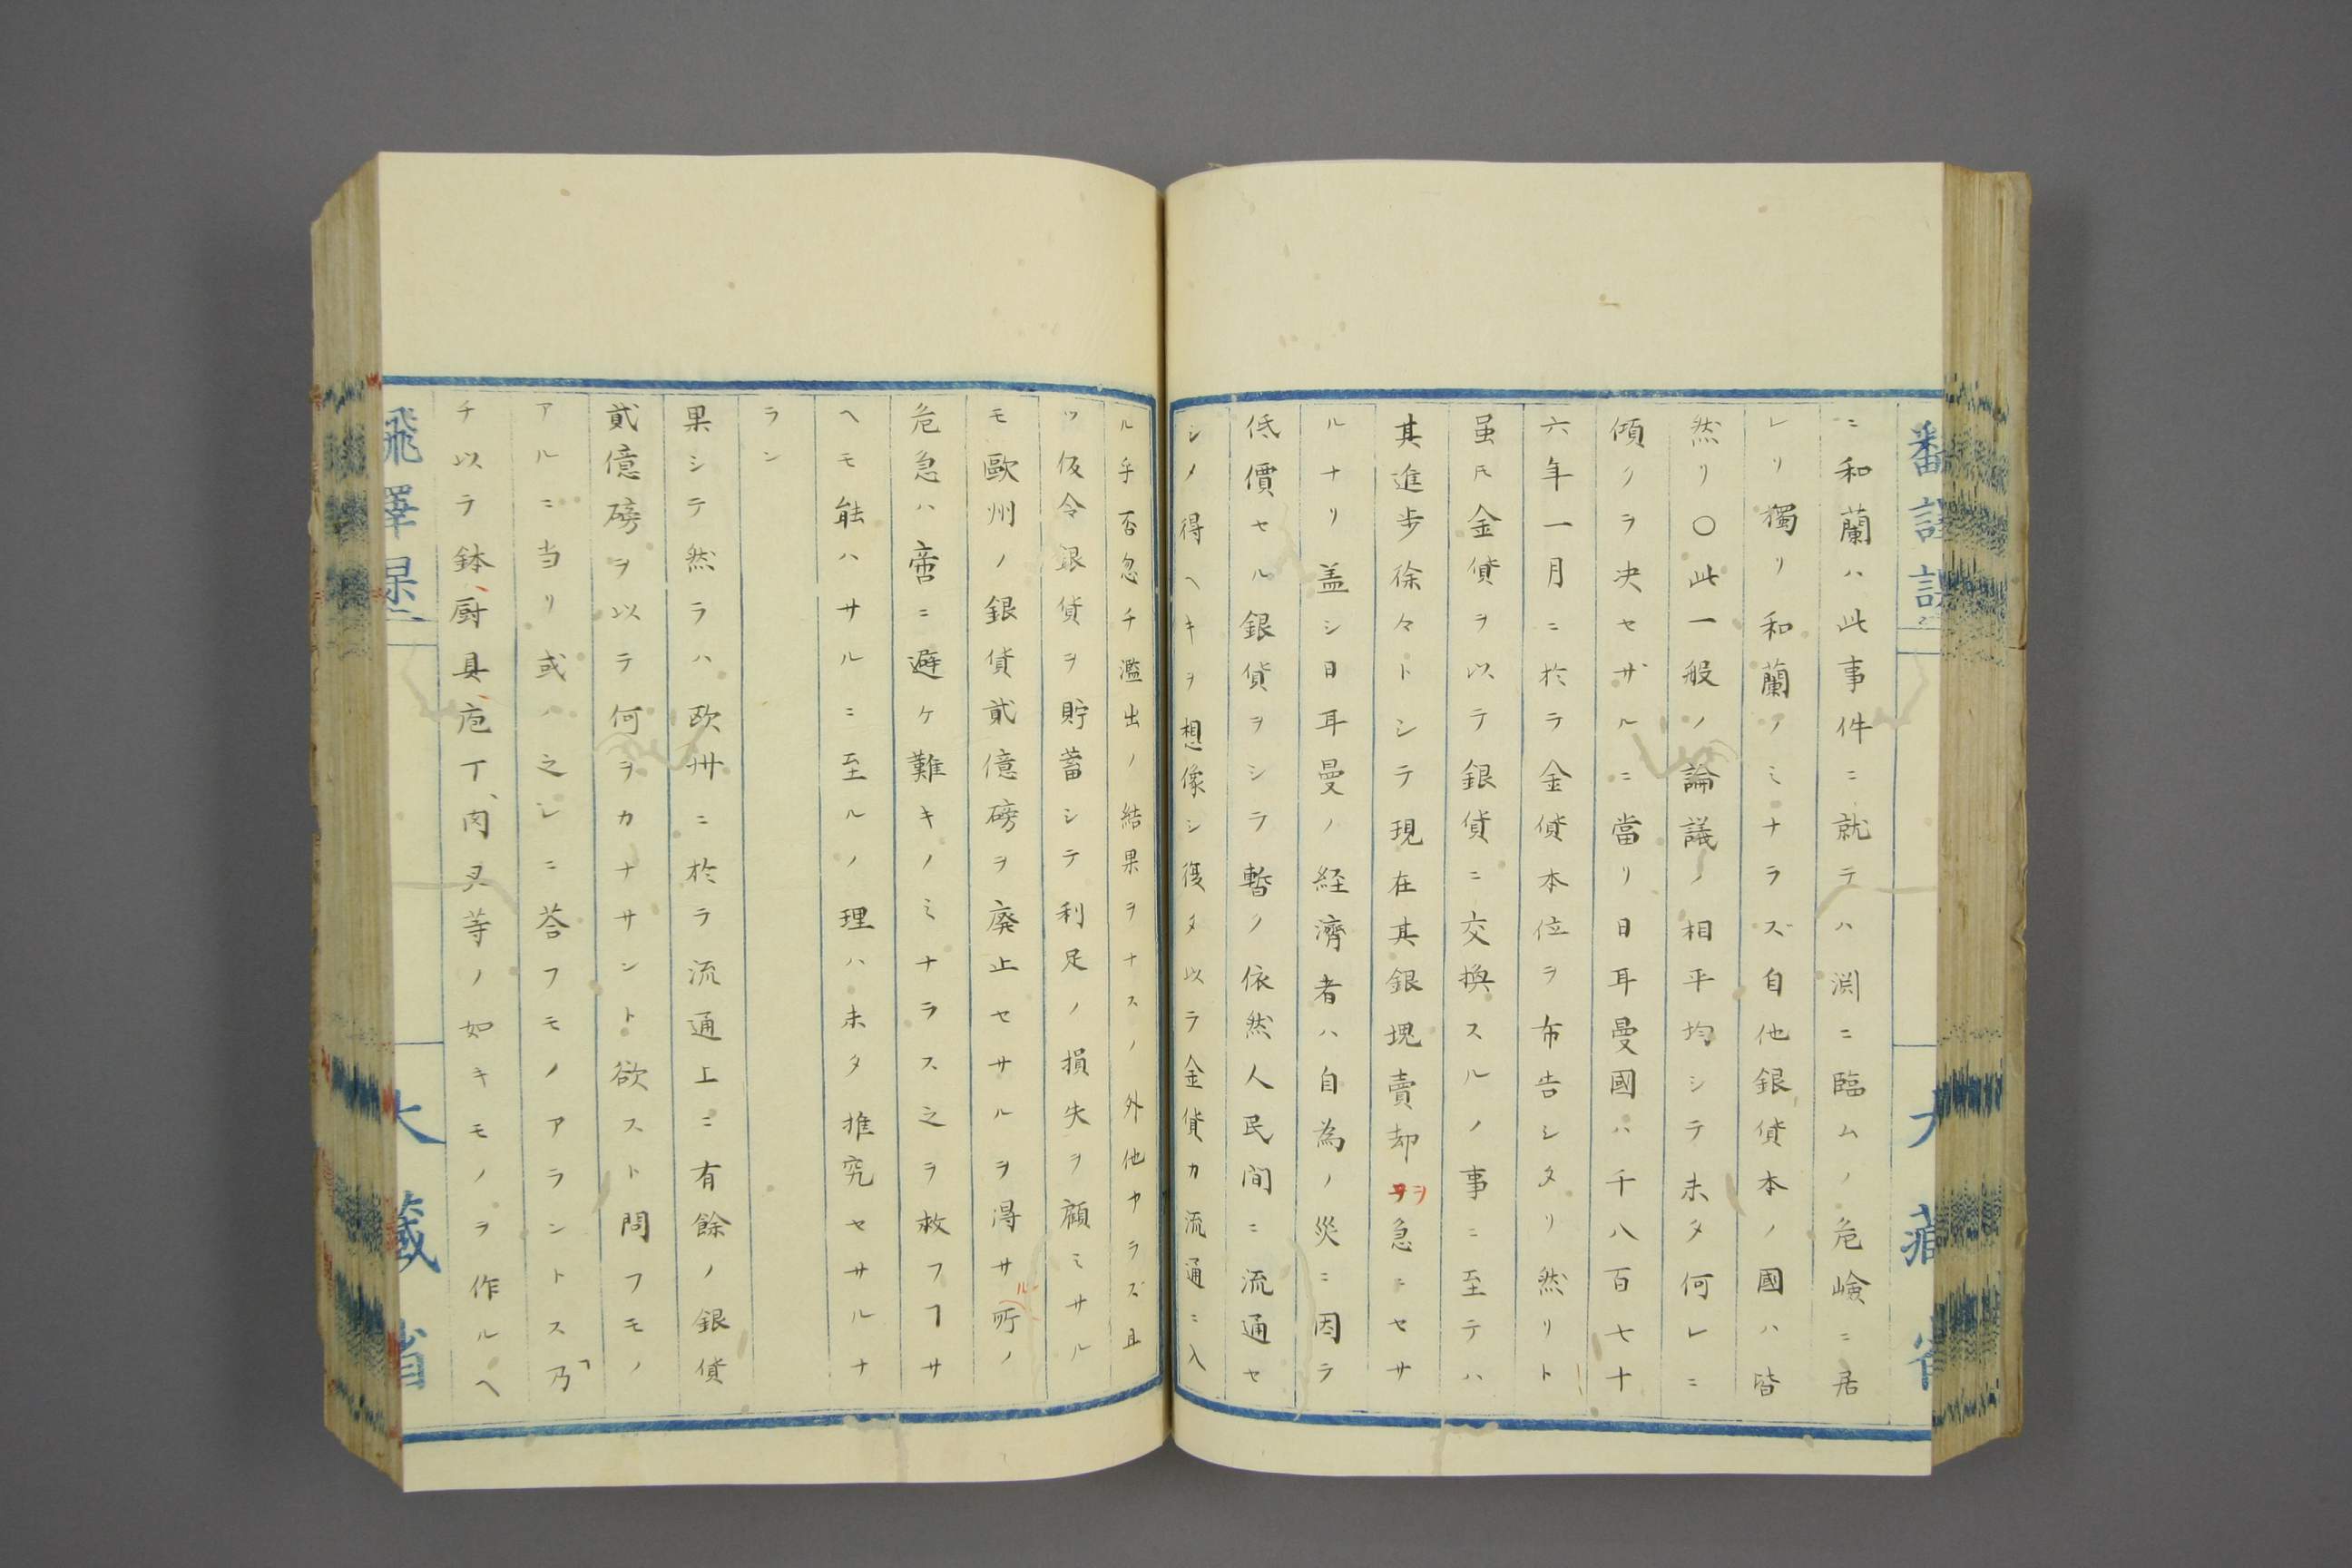 ニ和蘭ハ此事件ニ就テハ淵ニ臨ムノ危嶮ニ居
レリ獨リ和蘭ノミナラズ自他銀貨本ノ國ハ皆
然リ〇此一般ノ論議ノ相平均シテ未タ何レニ
傾クヲ决セザルニ當リ日耳曼國ハ千八百七十
六年一月ニ於テ金貨本位ヲ布告シタリ然リト
虽𪜈金貨ヲ以テ銀貨ニ交換スルノ事ニ至テハ
其進歩徐々トシテ現在其銀塊賣却ヲ急ニセサ
ルナリ盖シ日耳曼ノ経濟者ハ自為ノ災ニ因テ
低價セル銀貨ヲシテ暫ク依然人民間ニ流通セ
シメ得ヘキヲ想像シ復タ以テ金貨カ流通ニ入
ル乎否忽チ濫出ノ結果ヲナスノ外他ヤラズ且
ツ仮令銀貨ヲ貯蓄シテ利足ノ損失ヲ顧ミサル
モ歐州ノ銀貨貳億磅ヲ廃止セサルヲ得サル所ノ
危急ハ啻ニ避ケ難キノミナラス之ヲ救フヿサ
ヘモ能ハサルニ至ルノ理ハ未タ推究セサルナ
ラン
果シテ然ラハ欧卅ニ於テ流通上ニ有餘ノ銀貨
貳億磅ヲ以テ何ヲカナサント欲スト問フモノ
アルニ当リ或ハ之レニ荅フモノアラントス乃
チ以テ鉢、厨具、庖丁、肉叉等ノ如キモノヲ作ルヘ
大藏省
大藏省